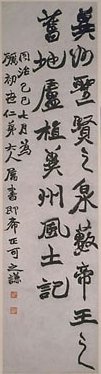 冀州聖賢之泉藪帝王之
舊地盧植冀州風土記
同治己巳七月為
初世仁弟大人屬書即希正可之謙